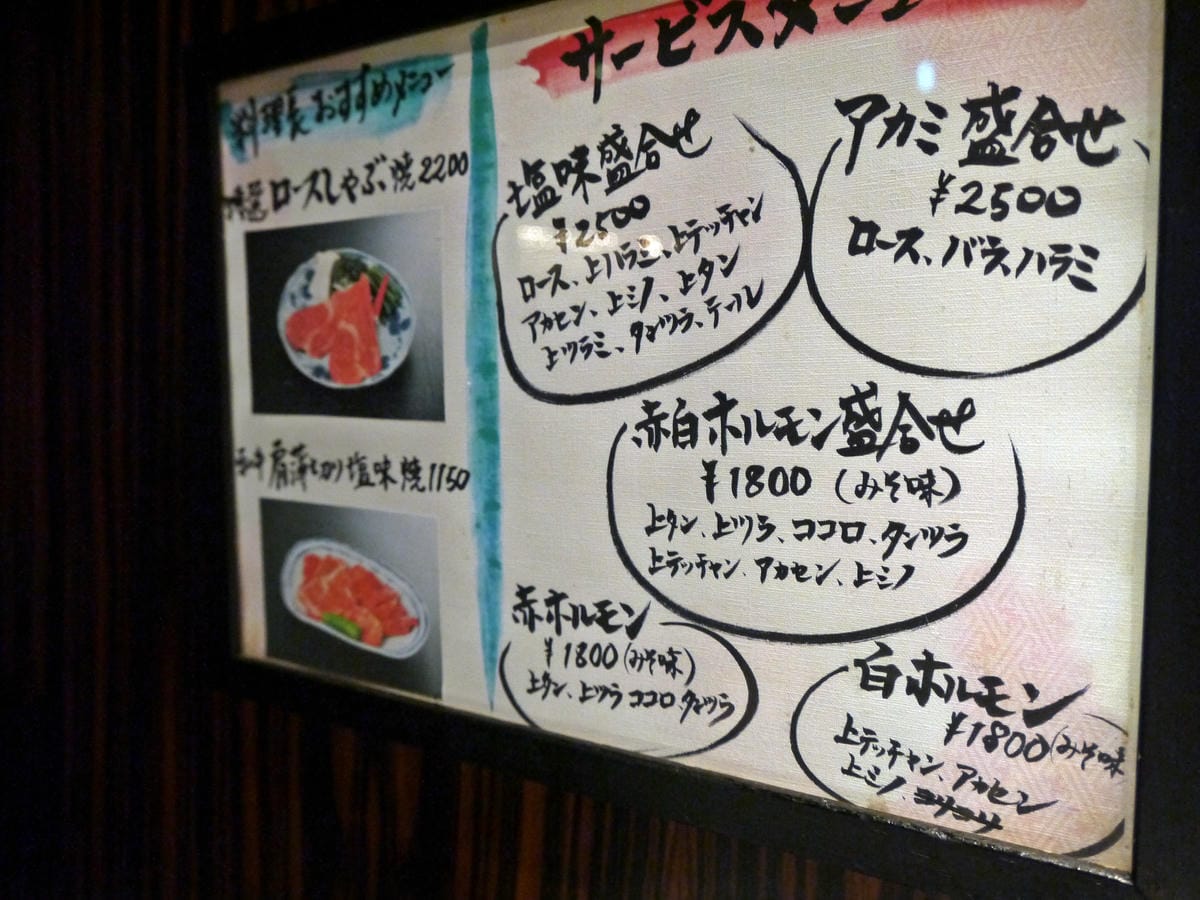 料理長おすすめメニュー
特選ロースしゃぶ焼2200
肩薄切り塩味焼1150
サービスメニュー
塩味盛合せ
¥2500
ロース、上ハラミ、上テッチャン
アカセン、上ミノ、上タン
上ツラミ、タンツラ、テール
アカミ盛合せ
¥2500
ロース、バラ、ハラミ
赤白ホルモン盛合せ
¥1800(みそ味)
上タン、上ツラ、ココロ、タンツラ
上テッチャン、アカセン、上ミノ
赤ホルモン
¥1800(みそ味)
上タン、上ツラ ココロ、タンツラ
白ホルモン
¥1800(みそ味
上テッチャン、アカセン
上ミノ、